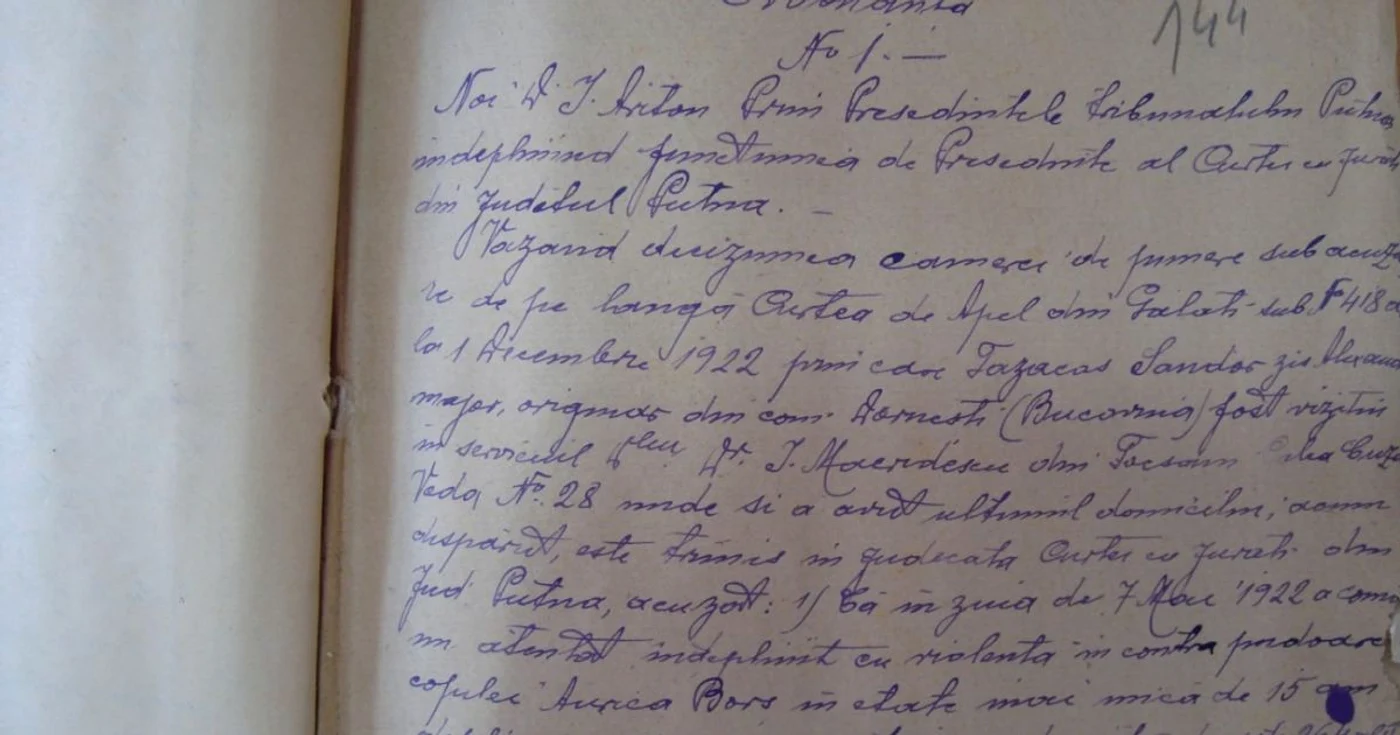 144
No 1. —
Noi D. I. Ariton Prim Presedintele Tribunalului Putna
indeplinind functiunea de Presedinte al Curtei cu Jurati
din Judetul Putna. —
Vazand deciziunea camerei de punere sub acuza
re de pe langă Curtea de Apel din Galati sub No 418
la 1 Decembrie 1922 prin care Tazacas Sandor zis
major, originar din com. Dornesti (Bucovina) fost vizitiu
in serviciul Dlui Dr. I. din Focsani Cuza
Voda No. 28 unde si a avut ultimul domiciliu, acum
disparut, este trimis in judecata Curtei cu Jurati din
Jud Putna, acuzat: 1) Că in ziua de 7 Mai 1922 a comis
un atentat indeplinit cu violenta in contra pudoarei
copilei Aurica Bors in etate mai mică de 15 ani